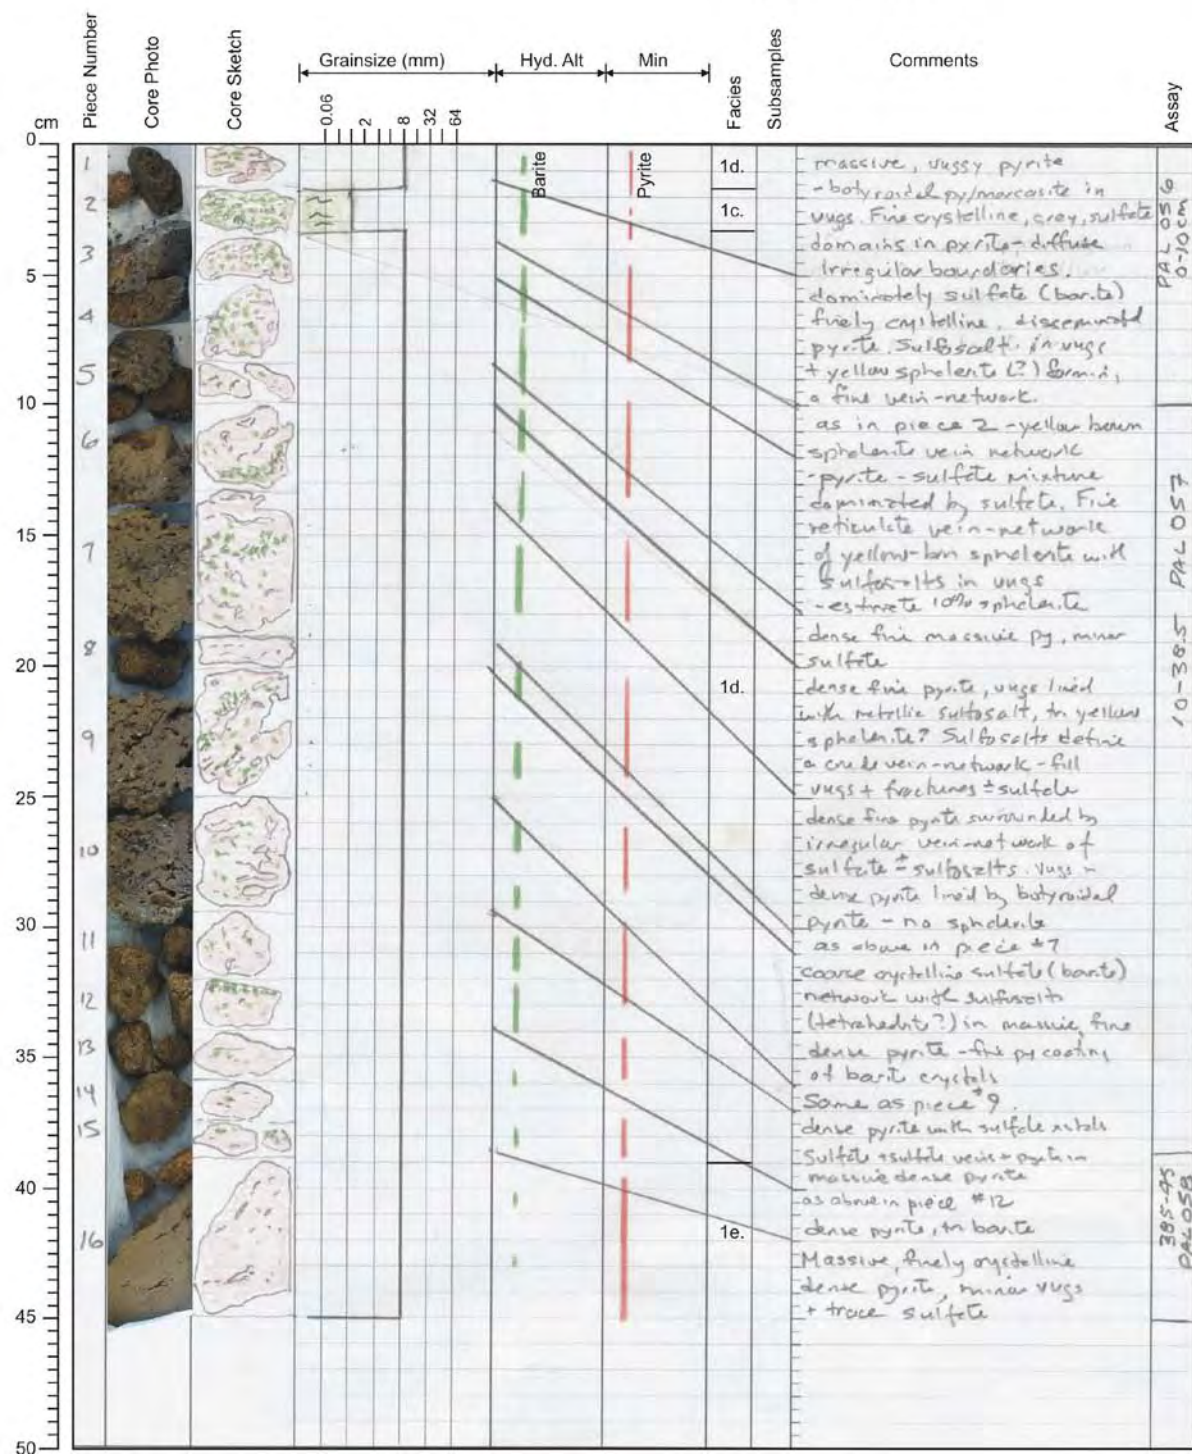 Piece Number
Core Photo
Core Sketch
Grainsize (mm)
Hyd. Alt
Min
Facies
Subsamples
Comments
Assay
cm
0.06
2
8
32
64
0
5
10
15
20
25
30
35
40
45
50
1
2
3
4
5
6
7
8
9
10
11
12
13
14
15
16
Barite
Pyrite
1d.
1c.
1d.
1e.
massive, vuggy pyrite
- botyroidal py/marcasite in
vugs. Fine crystalline, grey, sulfate
domains in pyrite - diffuse
irregular boundaries.
dominately sulfate (barite)
finely crystelline, disseminated
pyrite. Sulfosalt in vugs
+ yellow sphelerite (?)
a fine vein-network.
as in piece 2 - yellow brown
sphelerite vein network
- pyrite - sulfate mixture
dominated by sulfate. Fine
reticulate vein-network
of yellow-brn sphelerite with
sulfosalts in vugs
- estimate 10% sphelerite
dense fine massive py, minor
sulfate
dense fine pyrite, vugs lined
with metallic sulfosalt, tr yellow
sphelerite? Sulfosalts define
a crude vein-network - fill
vugs + fractures ± sulfate
dense fine pyrite surrounded by
irregular vein-network of
sulfate ± sulfosalts. Vugs in
dense pyrite lined by botyroidal
pyrite - no sphelerite
as above in piece #7
coarse crystelline sulfate (barite)
network with sulfosalts
(tetrahedrite?) in massive, fine
dense pyrite - fine py coating
of barite crystals
Same as piece #9.
dense pyrite with sulfate xstals
Sulfate + sulfate veins + pyrite in
massive dense pyrite
as above in piece #12
dense pyrite, tr barite
Massive, finely crystelline
dense pyrite, minor vugs
+ trace sulfate
PAL 056
0-10cm
10-38.5 PAL 057
385-45
PAL 058